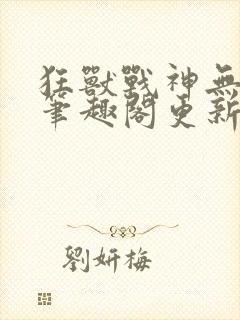 狂獸戰神無
筆趣閣更新
劉妍梅